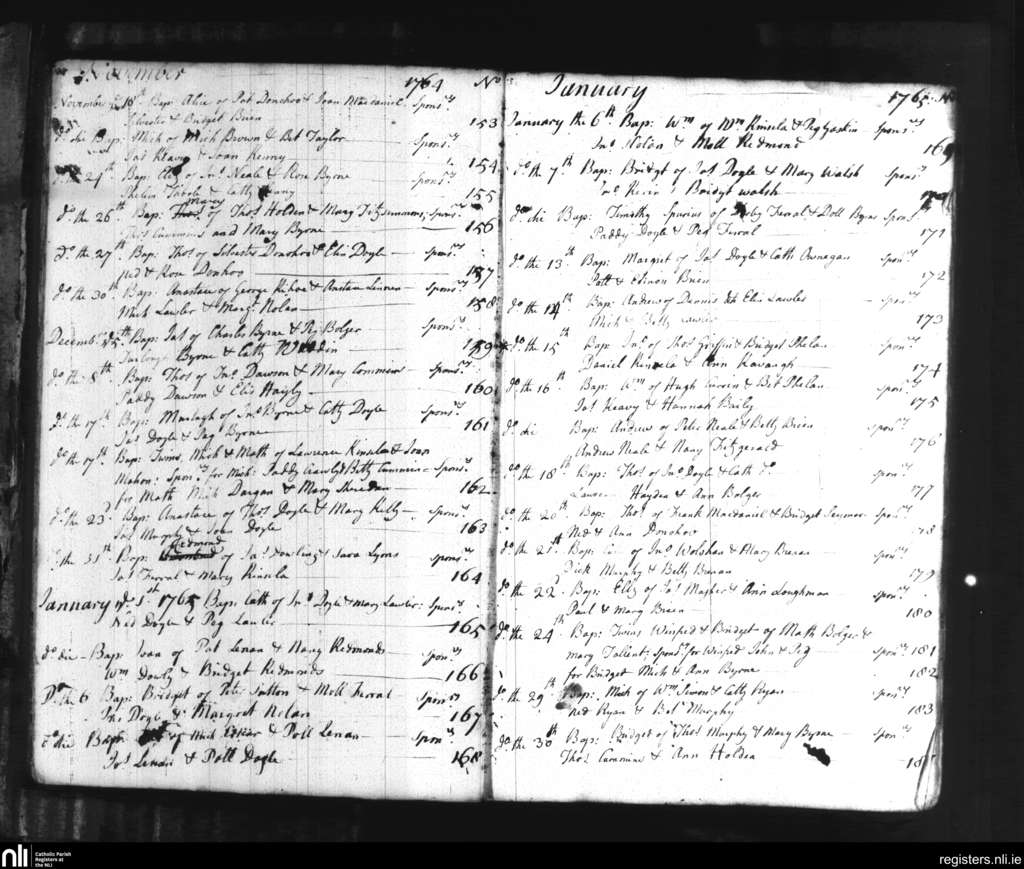 November 1764 No
November 18th Bap: Alice of Pat Donohoe & Joan Macdaniel Sponsrs
Silvester & Bridget Buen 153
do die Bap: Mich of Mich Brown & Bet Taylor Sponsrs
Jas Keavy & Joan Kenny 154
do the 21th Bap: of Jno Neale & Rose Byrne Sponsrs
Phelim Toole & Catty 155
Mary
do the 26th Bap: of Thos Holden & Mary Fitzsimmons Sponsrs
Thos Cummins and Mary Byrne 156
do the 27th Bap: Thos of Silvester Donohoe & Elis Doyle sponsrs
Ned & Rose Donhoe 157
do the 30th Bap: Anastace of George Kehoe & Anstace Sponsrs
Mich Lawler & Margt Nolan 158
December 5th Bap: Jas of Charles Byrne & Peg Bolger Sponsrs
Byrne & Catty 159
do the 8th Bap: Thos of Jno Dawson & Mary Commins Sponsrs
Paddy Dawson & Elis Haigly 160
do the 17th Bap: Murtagh of Jno Byrne & Catty Doyle Sponsrs
Jas Doyle & Peg Byrne 161
do the 17th Bap: Twins, Mich & Math of Lawrence Kinsela & Joan
Mahon: Sponrs for Mich: Paddy & Betty Cummin Sponsrs
for Math Mich Dargan & Mary Sheredan 162
do the 23d Bap: Anastace of Thos Doyle & Mary Kelly Sponsrs
Jas Murphy & Joan Doyle 163
Redmond
do the 31st Bap: of Jas Dowling & Sara Lyons sponsrs
Jas Furral & Mary Kinsela 164
January ye 1st 1765 Bap: Cath of Jno Doyle & Mary Lawler Sponsrs
Ned Doyle & Peg Lawler 165
do die Bap: Joan of Pat Lenan & Nancy Redmonds Sponrs
Wm Dowly & Bridget Redmonds 166
Do the 6 Bap: Bridget of Peter Sutton & Moll Furral Sponsrs
Jas Doyle & Margret Nolan 167
do die Bap: of Mich & Poll Lenan Sponsrs
Jos Lenan & Poll Doyle 168
January 1765
January the 6th Bap: Wm of Wm Kinsela & Peg Sponsrs
Jno Nolan & Moll Redmond 169
do the 7th Bap: Bridgt of Jas Doyle & Mary Walsh Sponsrs
Jno & Bridgt walsh 170
do die Bap: Timothy Spurius of Toby Furral & Doll Byrne Sponsrs
Paddy Doyle & Peg Furral 171
do the 13th Bap: Margret of Jas Doyle & Cath Sponrs
Patt & Elinon Buen 172
do the 14th Bap: Andrew of Dennis & Elis Lawler Sponrs
Mich & Betty Lawler 173
do the 15th Bap: Jno of Thos Griffin & Bridget Phelan Sponrs
Daniel Kinsela & Ann Kavangh 174
do the 16th Bap: Wm of Hugh & Bet Phelan sponsrs
Jas Keavy & Hannah Baily 175
do die Bap: Andrew of Peter Neale & Betty Brien sponrs
Andrew Neale & Nany Fitzgerald 176
do the 18th Bap: Thos of Jno Doyle & Cath Do sponrs
Hayden & Ann Bolger 177
do the 20th Bap: Thos of Frank Macdaniel & Bridget Seymor sponrs
Ned & Ann Donohoe 178
do the 21st Bap: of Jno Wolohan & Mary Brenan sponrs
Dick Murphy & Betty Brenan 179
do the 22d Bap: Eliz of Jas Masher & Ann Loughman sponrs
Paul & Mary Brien 180
do the 24th Bap: Twins Winifred & Bridget of Math Bolger &
Mary Tallent: sponsrs for Winifred John & Peg sponrs 181
for Bridget Mich & Ann Byrne 182
do the 29th Bap: Mich of Wm & Catty Ryan sponrs
Ned Ryan & Murphy 183
do the 30th Bap: Bridget of Thos Murphy & Mary Byrne sponrs
Thos & Ann Holden 18
nli Catholic Parish Registers at the NLI
registers.nli.ie